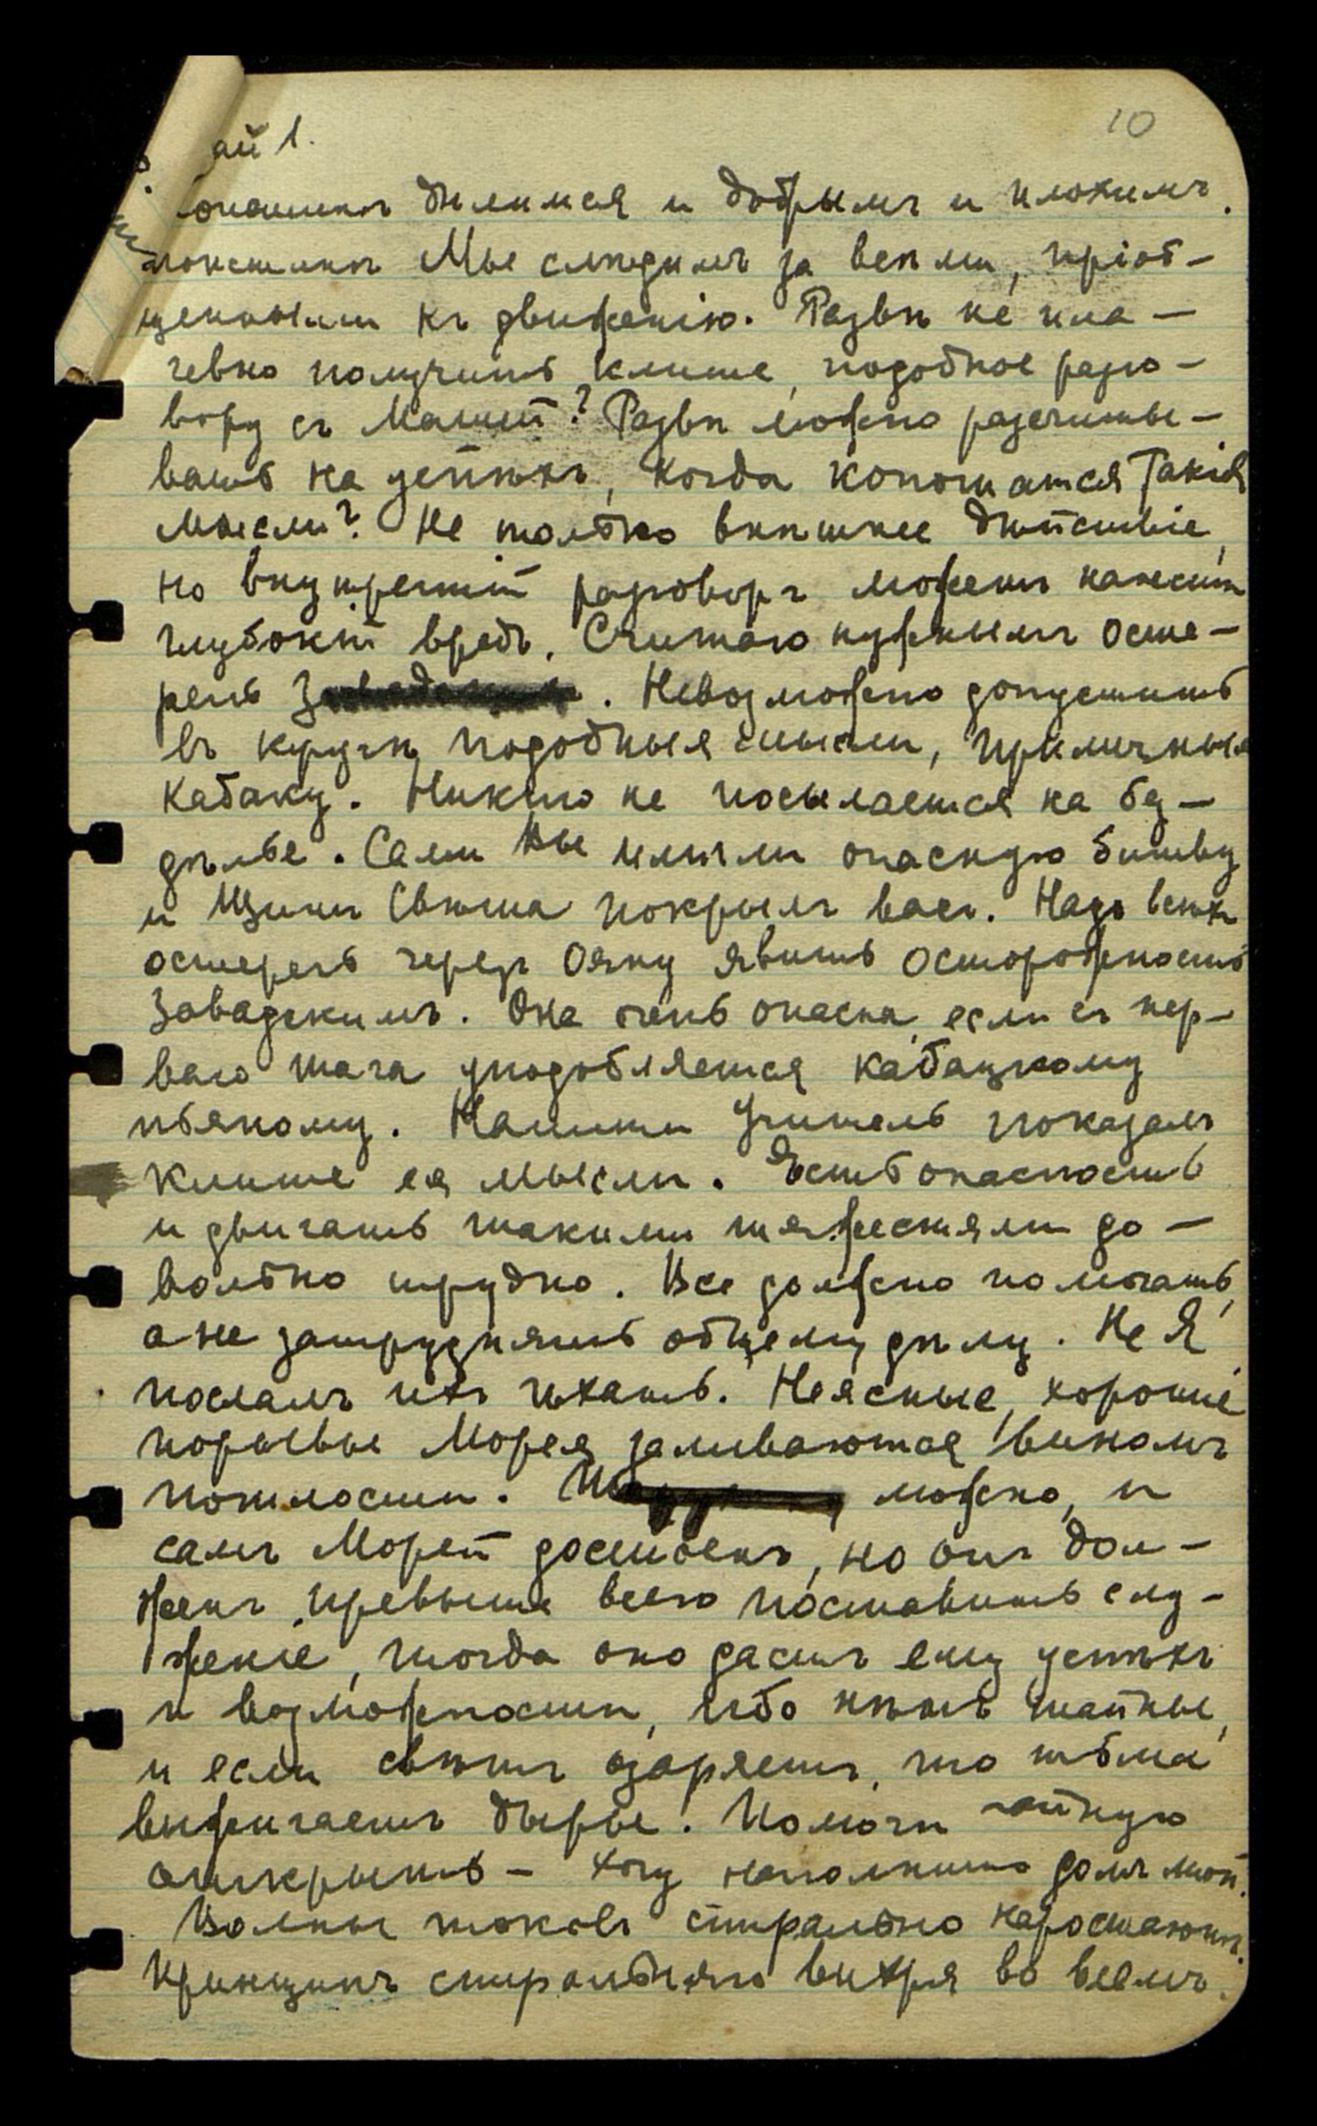 10
ай 1.
дѣлимся и добрымъ и плохимъ.
Мы слѣдимъ за всѣми, пріоб-
щенными къ движенію. Развѣ не пла-
чевно получить клише, подобное разго-
вору съ Машей? Развѣ можно разсчиты-
вать на успѣхъ, когда копошатся такія
мысли? Не только внѣшнее дѣйствіе,
но внутренній разговоръ можетъ нанести
глубокій вредъ. Считаю нужнымъ осте-
речь . Невозможно допустить
въ кругъ подобныя мысли, приличныя
кабаку. Никто не посылается на без-
дѣлье. Сами Вы имѣли опасную битву
и Щитъ Свѣта покрылъ васъ. Надо всѣхъ
остеречь черезъ Ояну явить осторожность
Завадскимъ. Она очень опасна, если съ пер-
ваго шага уподобляется кабацкому
пьяному. Учитель показалъ
клише ея мысли. Есть опасность
и двигать такими тяжестями до-
вольно трудно. Все должно помогать,
а не затруднять общему дѣлу. Не Я
послалъ ихъ ѣхать. Неясные, хорошіе
порывы Морея заливаются виномъ
пошлости. можно, и
самъ Морей достоенъ, но онъ дол-
женъ превыше всего поставить слу-
женіе, тогда оно дастъ ему успѣхъ
и возможности, ибо нѣтъ тайны,
и если свѣтъ озаряетъ, то тьма
выжигаетъ дыры. Помоги тайную
открыть - хочу наполнить домъ мой.
Волны токовъ спирально наростаютъ.
Принципъ спиральнаго вихря во всемъ.